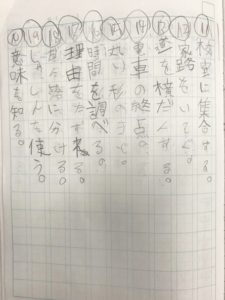 ⑪校庭に集合する。
⑫家路をいそぐ。
⑬道を横だんする。
⑭電車の終点。
⑮丸い形のさら。
⑯時間を調べる。
⑰理由をたずねる。
⑱に分ける。
⑲しょくりんを使う。
⑳意味を知る。